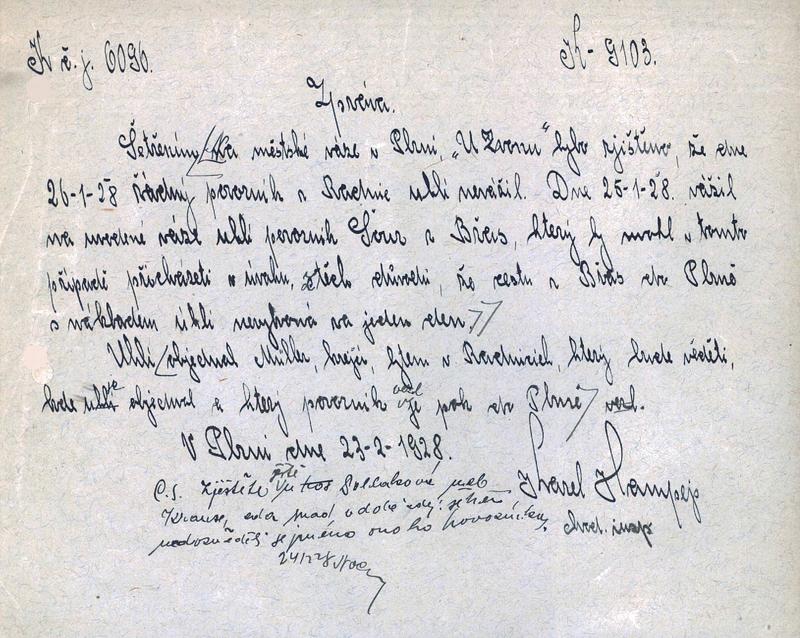 K č. j. 6096.
K - 9103.
Zpráva.
Šetřením na městské váze v Plzni, „U Zvonu" bylo zjištěno, že dne
26-1-28 žádný povozník z Radnic uhlí nevážil. Dne 25-1-28. vážil
na uvedené váze uhlí povozník Šour z Břas, který by mohl v tomto
případě přicházeti v úvahu, z těch důvodů, že cestu z Břas do Plzně
s nákladem uhlí nevykoná za jeden den.
Uhlí objednal Müller, krejčí, bytem v Radnicích, který bude věděti,
kde uhlí objednal a který povozník vezl je pak do Plzně vezl.
V Plzni dne 23-2-1928.
Karel Hampejs
C.s. Zjistěte ještě u Pollakové neb
Krause, zda snad v době
nedozvěděli se jméno onoho povozníka.
24/II 28